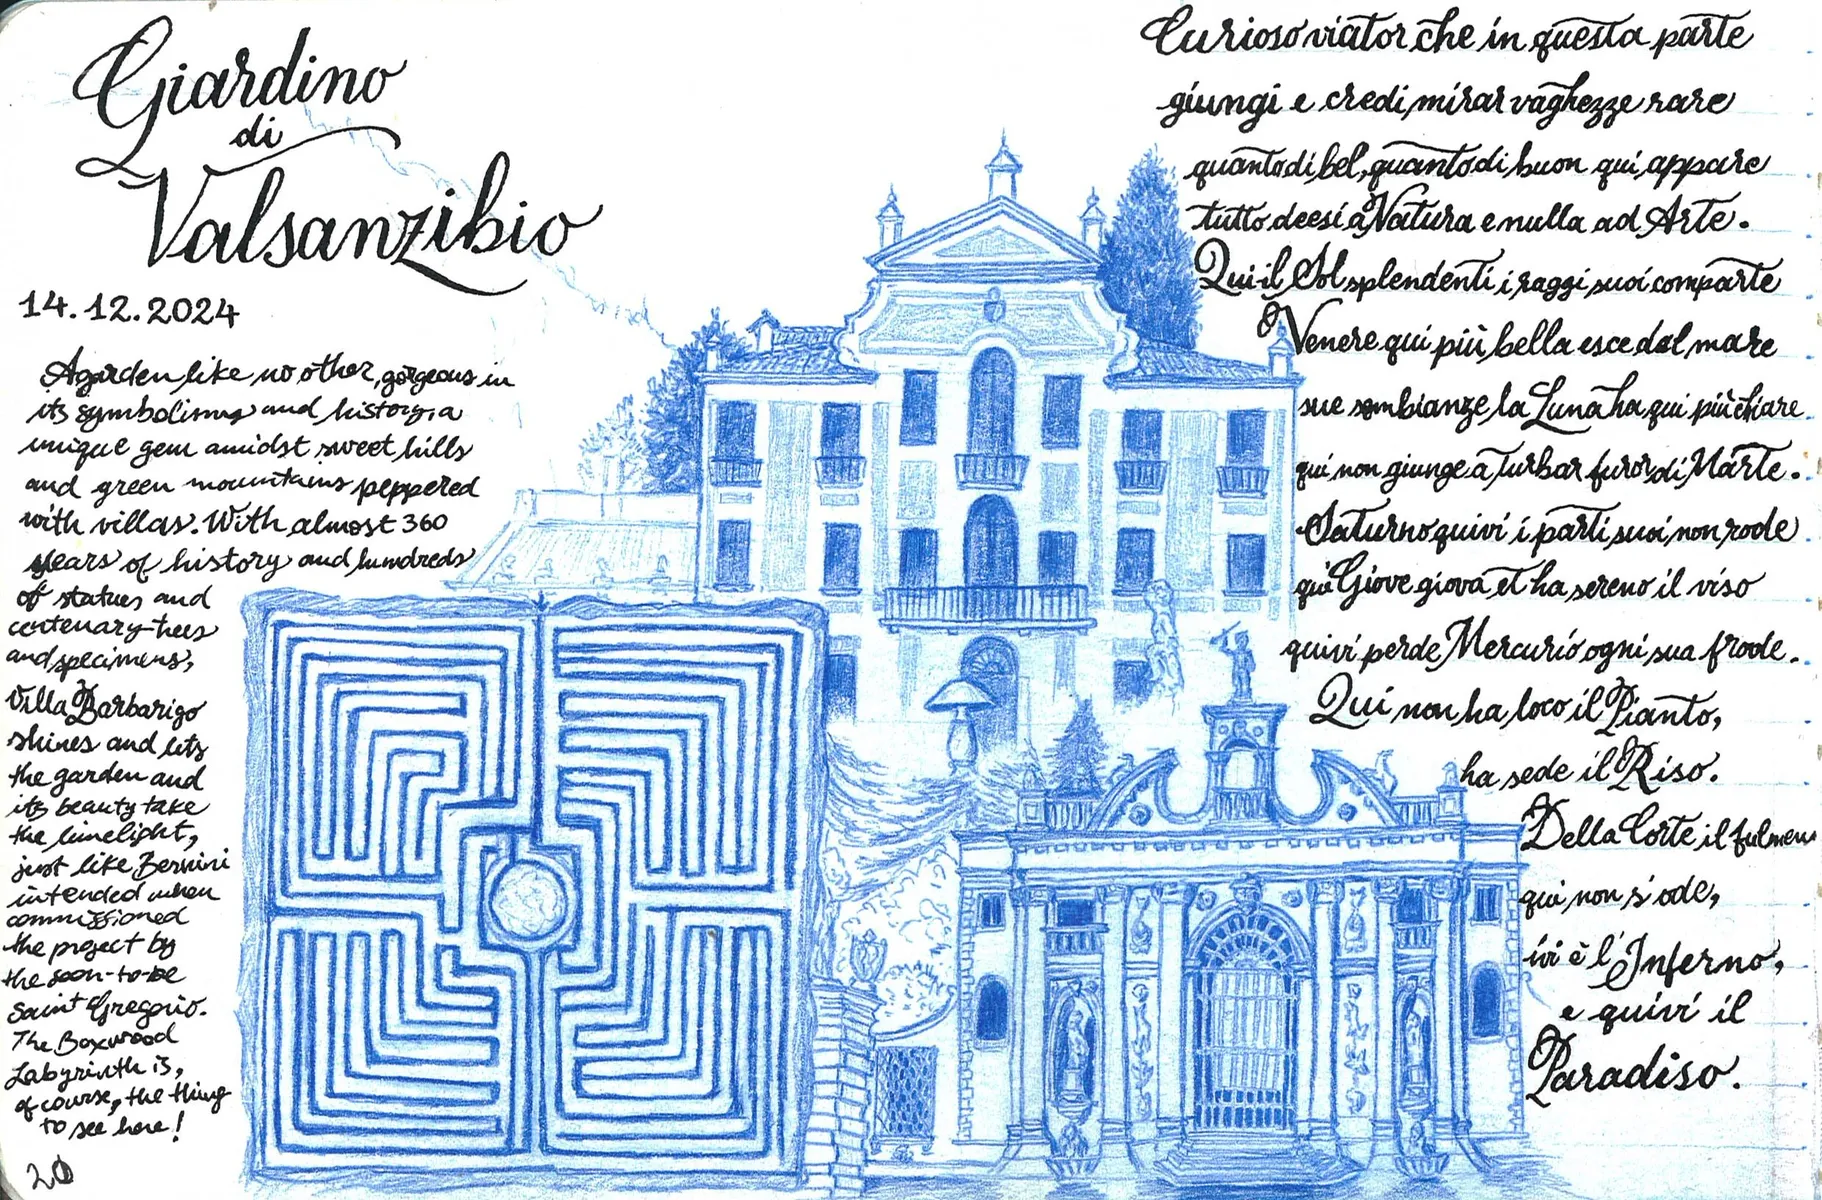 Giardino
di
Valsanzibio
14.12.2024
A garden like no other, gorgeous in
its symbolisms and history, a
unique gem amidst sweet hills
and green mountains peppered
with villas. With almost 360
years of history and hundreds
of statues and
centenary-trees
and specimens,
Villa Barbarigo
shines and lets
the garden and
its beauty take
the limelight,
just like Bernini
intended when
commissioned
the project by
the soon-to-be
Saint Gregorio.
The Boxwood
Labyrinth is,
of course, the thing
to see here!
20
Curioso viator che in questa parte
giungi e credi mirar vaghezze rare
quanto di bel, quanto di buon qui appare
tutto deesi a Natura e nulla ad Arte.
Qui il Sol splendenti i raggi suoi comparte
Venere qui più bella esce dal mare
sue sembianze la Luna ha qui più chiare
qui non giunge a turbar furor di Marte.
Saturno quivi i parti suoi non rode
qui Giove giova et ha sereno il viso
quivi perde Mercurio ogni sua frode.
Qui non ha loco il Pianto,
ha sede il Riso.
Della Corte il fulmen
qui non s'ode,
ivi è l'Inferno,
e quivi il
Paradiso.